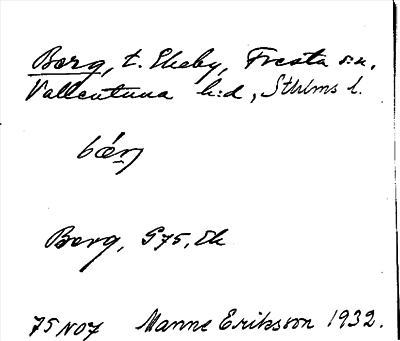 Berg, t. Ekeby, Fresta sn,
Vallentuna h:d, Sthlms l.
Berg, G75, Ek
75 NO7 Manne Eriksson 1932.